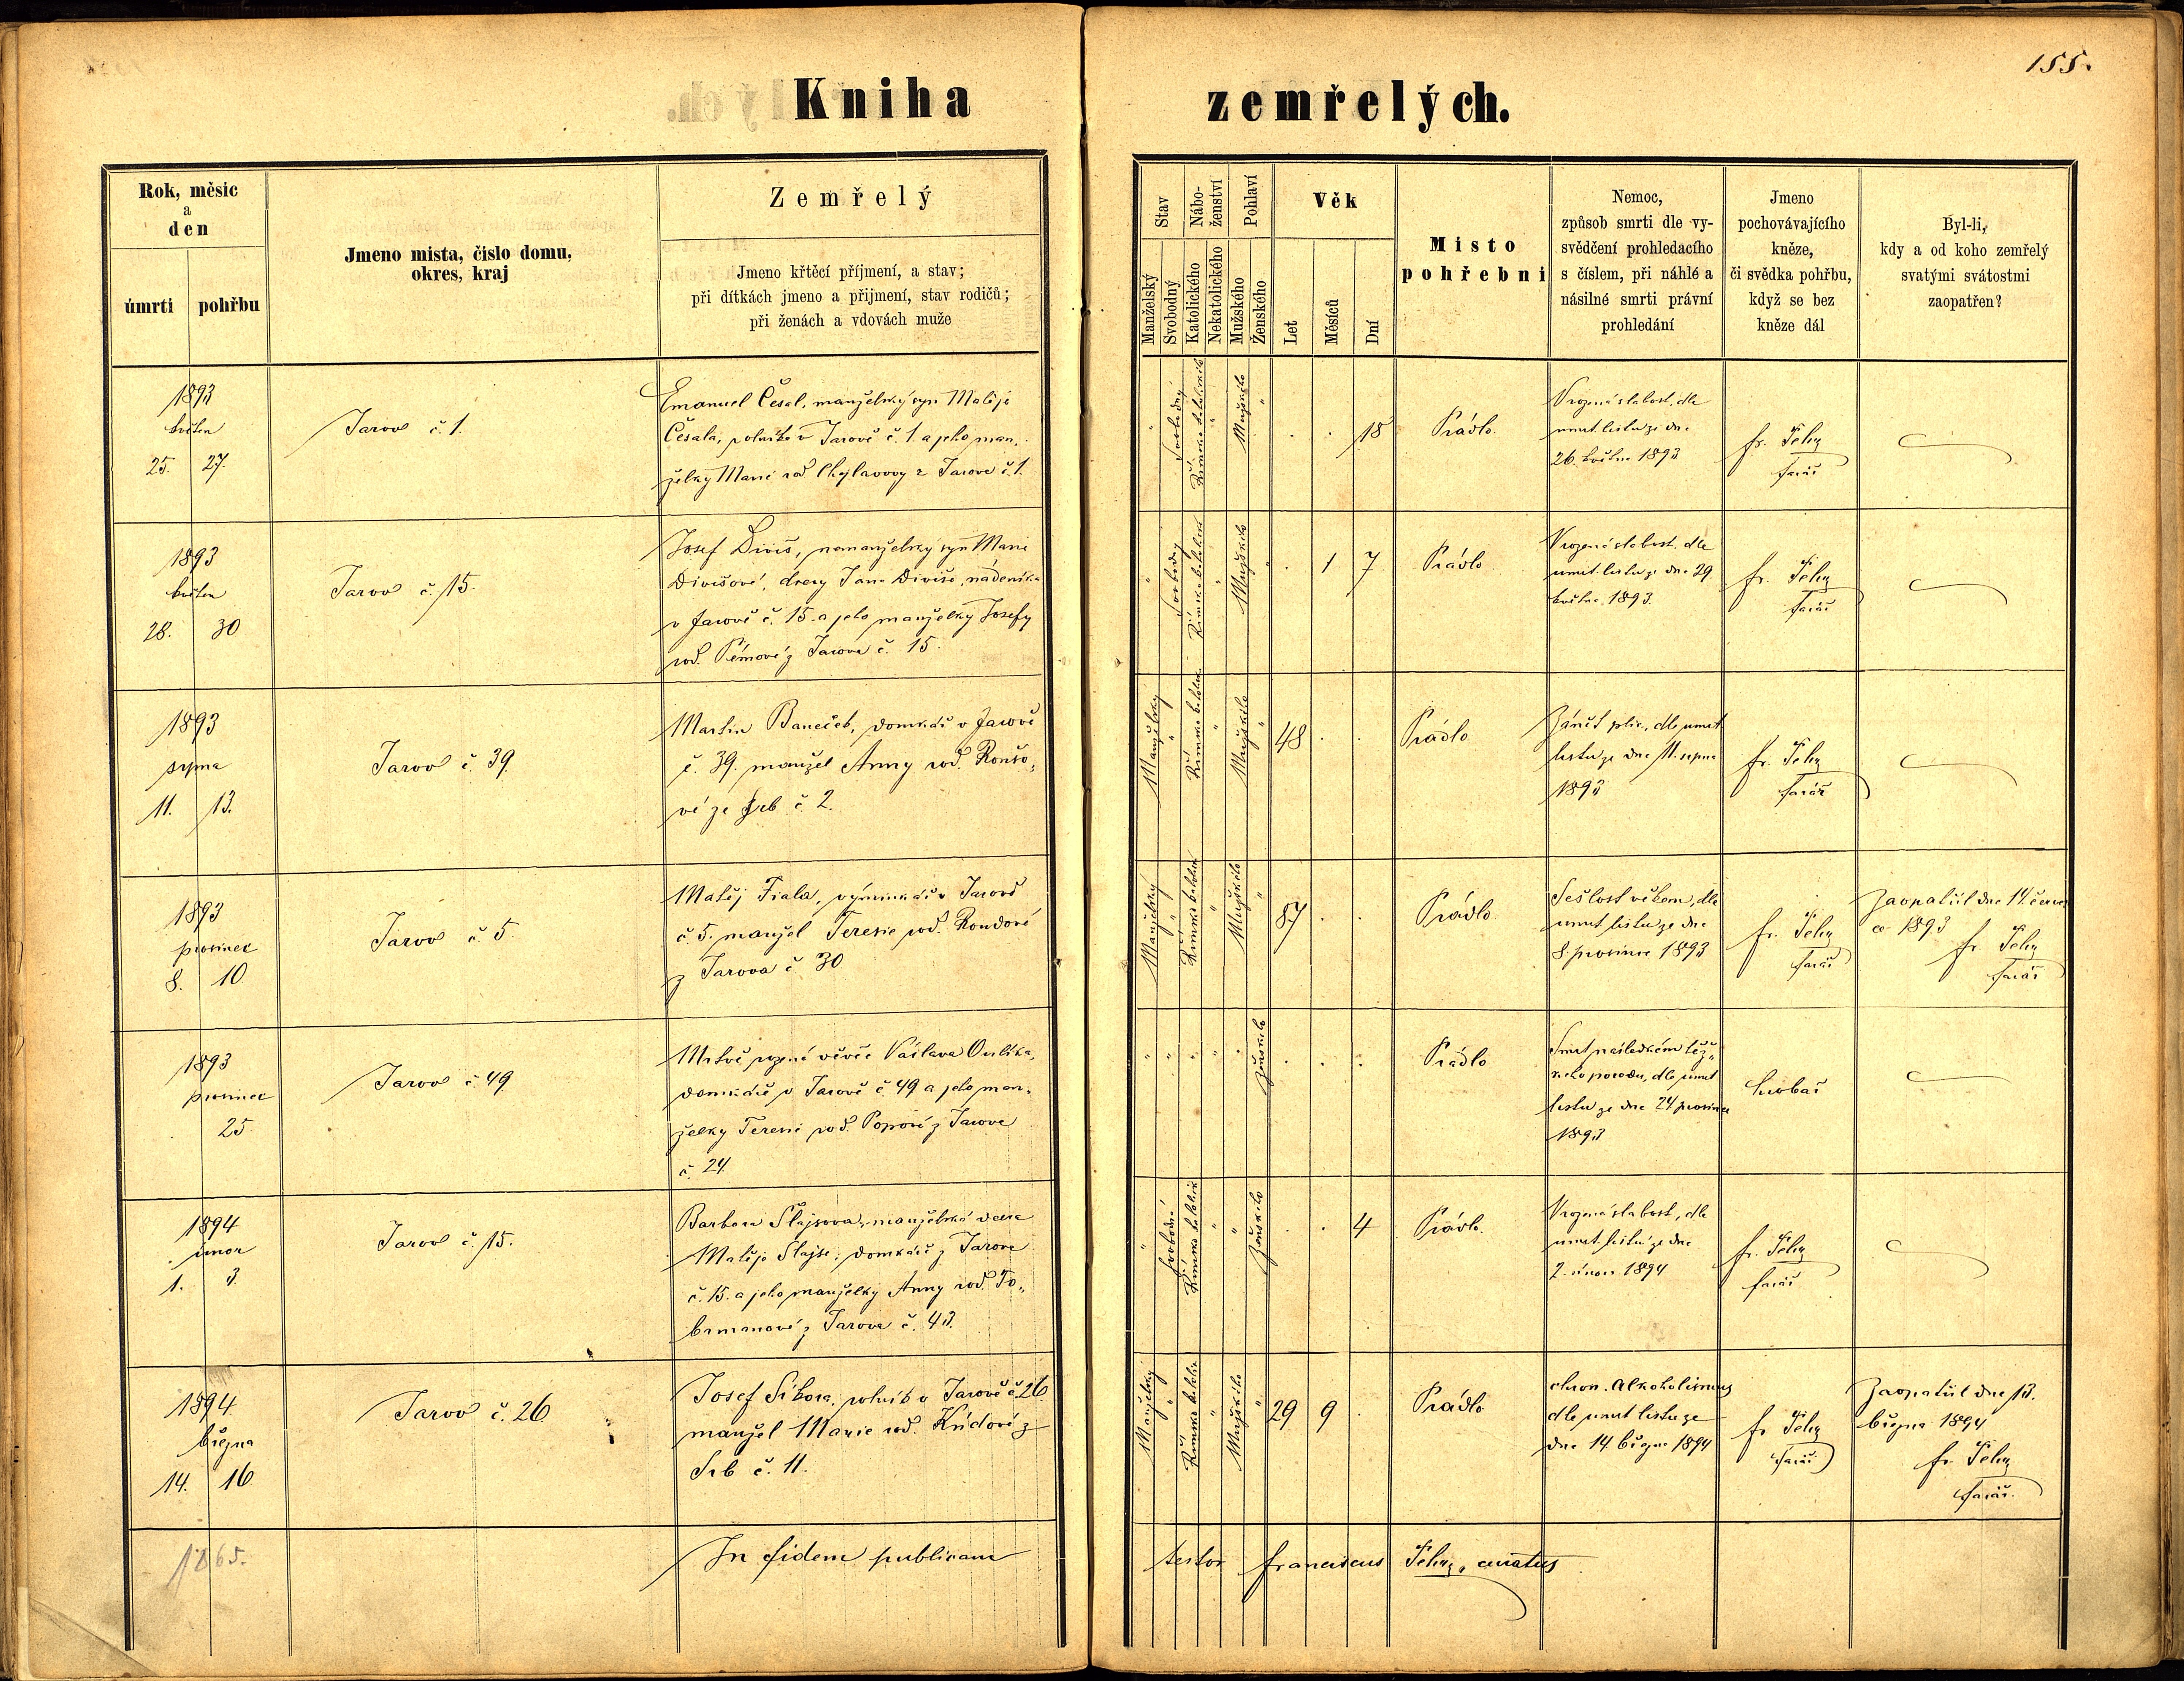 155.
Kniha zemřelých.
Rok, měsic
a
den
úmrti
pohřbu
Jmeno mista, čislo domu,
okres, kraj
Zemřelý
Jmeno křtěcí příjmení, a stav;
při dítkách jmeno a přijmení, stav rodičů;
při ženách a vdovách muže
Stav
Manželský
Svobodný
Nábo-
ženství
Katolického
Nekatolického
Pohlaví
Mužského
Ženského
Věk
Let
Měsíců
Dní
Misto
pohřebni
Nemoc,
způsob smrti dle vy-
svědčení prohledacího
s číslem, při náhlé a
násilné smrti právní
prohledání
Jmeno
pochovávajícího
kněze,
či svědka pohřbu,
když se bez
kněze dál
Byl-li,
kdy a od koho zemřelý
svatými svátostmi
zaopatřen?
1893
květen
25. 27.
Jarov č. 1.
Emanuel Česal, manželský syn Matěje
Česala, rolníka v Jarově č. 1. a jeho man-
želky Marie rod. z Jarova č. 1.
svobodný
Mužského
18
Prádlo.
Vrozená slabost, dle
úmrt. listu ze dne
26. května 1893
fr.
farář
1893
květen
28. 30
Jarov č. 15.
Josef Diviš, nemanželský syn Marie
Divišové, dcery Jana Diviše, nádeníka
v Jarově č. 15. a jeho manželky Josefy
rod. z Jarova č. 15.
svobodný
Mužského
1 7
Prádlo.
Vrozená slabost, dle
úmrt. listu ze dne 29.
května 1893.
fr.
farář
1893
srpna
11. 13.
Jarov č. 39.
Martin Baneček, domkář v Jarově
č. 39. manžel Anny rod. Roušo-
vé ze Srb č. 2.
Manželský
Mužského
48
Prádlo
Zánět plic, dle úmrt
listu ze dne 11. srpna
1893
fr.
farář
1893
prosinec
8. 10.
Jarov č. 5.
Matěj Fiala, výminkář v Jarově
č. 5. manžel Teresie rod. Roudové
z Jarova č. 30
Manželský
Mužského
87
Prádlo
Sešlost věkem, dle
úmrt. listu ze dne
8. prosince 1893
fr.
farář
Zaopatřil dne 14. červen-
ce 1893
fr.
farář
1893
prosinec
25
Jarov č. 49
Mrtvě rozené děvče Václava
domkáře v Jarově č. 49 a jeho man-
želky Teresie rod. Popové z Jarova
č. 24.
ženského
Prádlo
Smrt následkem těž-
kého porodu, dle úmrt
listu ze dne 24 prosince
1893
hrobař
1894
únor
1. 3.
Jarov č. 15.
Barbora Šlajsova, manželská dcera
Matěje Šlajse, domkáře z Jarova
č. 15. a jeho manželky Anny rod. To-
brmanové z Jarova č. 43.
svobodná
Ženského
4
Prádlo.
Vrozená slabost, dle
úmrt. listu ze dne
2. února 1894
fr.
farář
1894.
března
14. 16
Jarov č. 26
Josef Síkora, rolník v Jarově č. 26
manžel Marie rod. z
Srb č. 11.
Manželský
Mužského
29 9
Prádlo
chron. Alkoholismus
dle úmrt listu ze
dne 14 března 1894
fr.
farář
Zaopatřil dne 13.
března 1894
fr.
farář.
1865.
In fidem publicam testor franciscus curatus